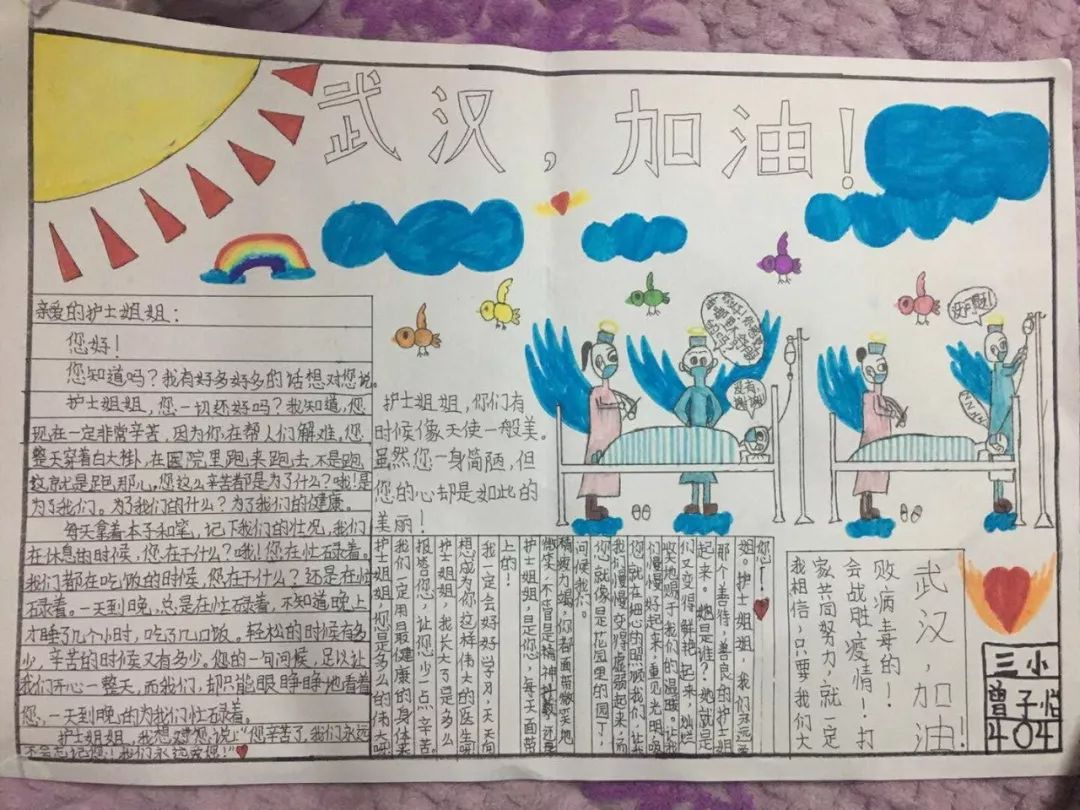 武汉，加油！
亲爱的护士姐姐：
您好！
您知道吗？我有好多好多的话想对您说。
护士姐姐，您一切还好吗？我知道，您
现在一定非常辛苦，因为你在帮人们解难，您
整天穿着白大褂，在医院里跑来跑去，不是跑
这就是跑那儿，您这么辛苦都是为了什么？哦！是
为了我们。为了我们的什么？为了我们的健康。
每天拿着本子和笔，记下我们的状况，我们
在休息的时候，您在干什么？哦！您在忙碌着。
我们都在吃饭的时候，您在干什么？还是在忙
碌着。一天到晚，总是在忙碌着，不知道晚上
才睡了几个小时，吃了几口饭。轻松的时候有多
少，辛苦的时候又有多少。您的一句问候，足以让
我们开心一整天，而我们，却只能眼睁睁地看着
您，一天到晚的为我们忙碌着。
护士姐姐，我想对您说上"您辛苦了，我们永远
不会忘记您！我们永远爱您！"
护士姐姐，你们有
时候像天使一般美。
虽然您一身简陋，但
您的心却是如此的
美丽！
没有，谢谢！
没问题！
您！
姐。护士姐姐，我们永远爱
那个善待，善良的护士姐
起来。她是谁？她就是
们又变得鲜艳起来，灿烂
收笑地赐于我们的温暖。让我
们慢慢好起来，重见光明吸
您就在细心的照顾我们，让我
我们慢慢变得虚弱起来，而
您就像是花园里的园丁，
问候我们。
精疲力竭，你都面带微笑地
微笑，不管是精神抖擞，还是
护士姐姐，是您，每天面带
上的！
我一定会好好学习，天天向
想成为你这样伟大的医生呀
护士姐姐，我长大了是多么
报答您，让您少一点辛苦
我们一定用最健康的身体来
护士姐姐，您是多么的伟大呀
武汉，加油！
败病毒的！
会战胜疫情！打
家共同努力，就一定
我相信，只要我们大
三小
曾子怡
404